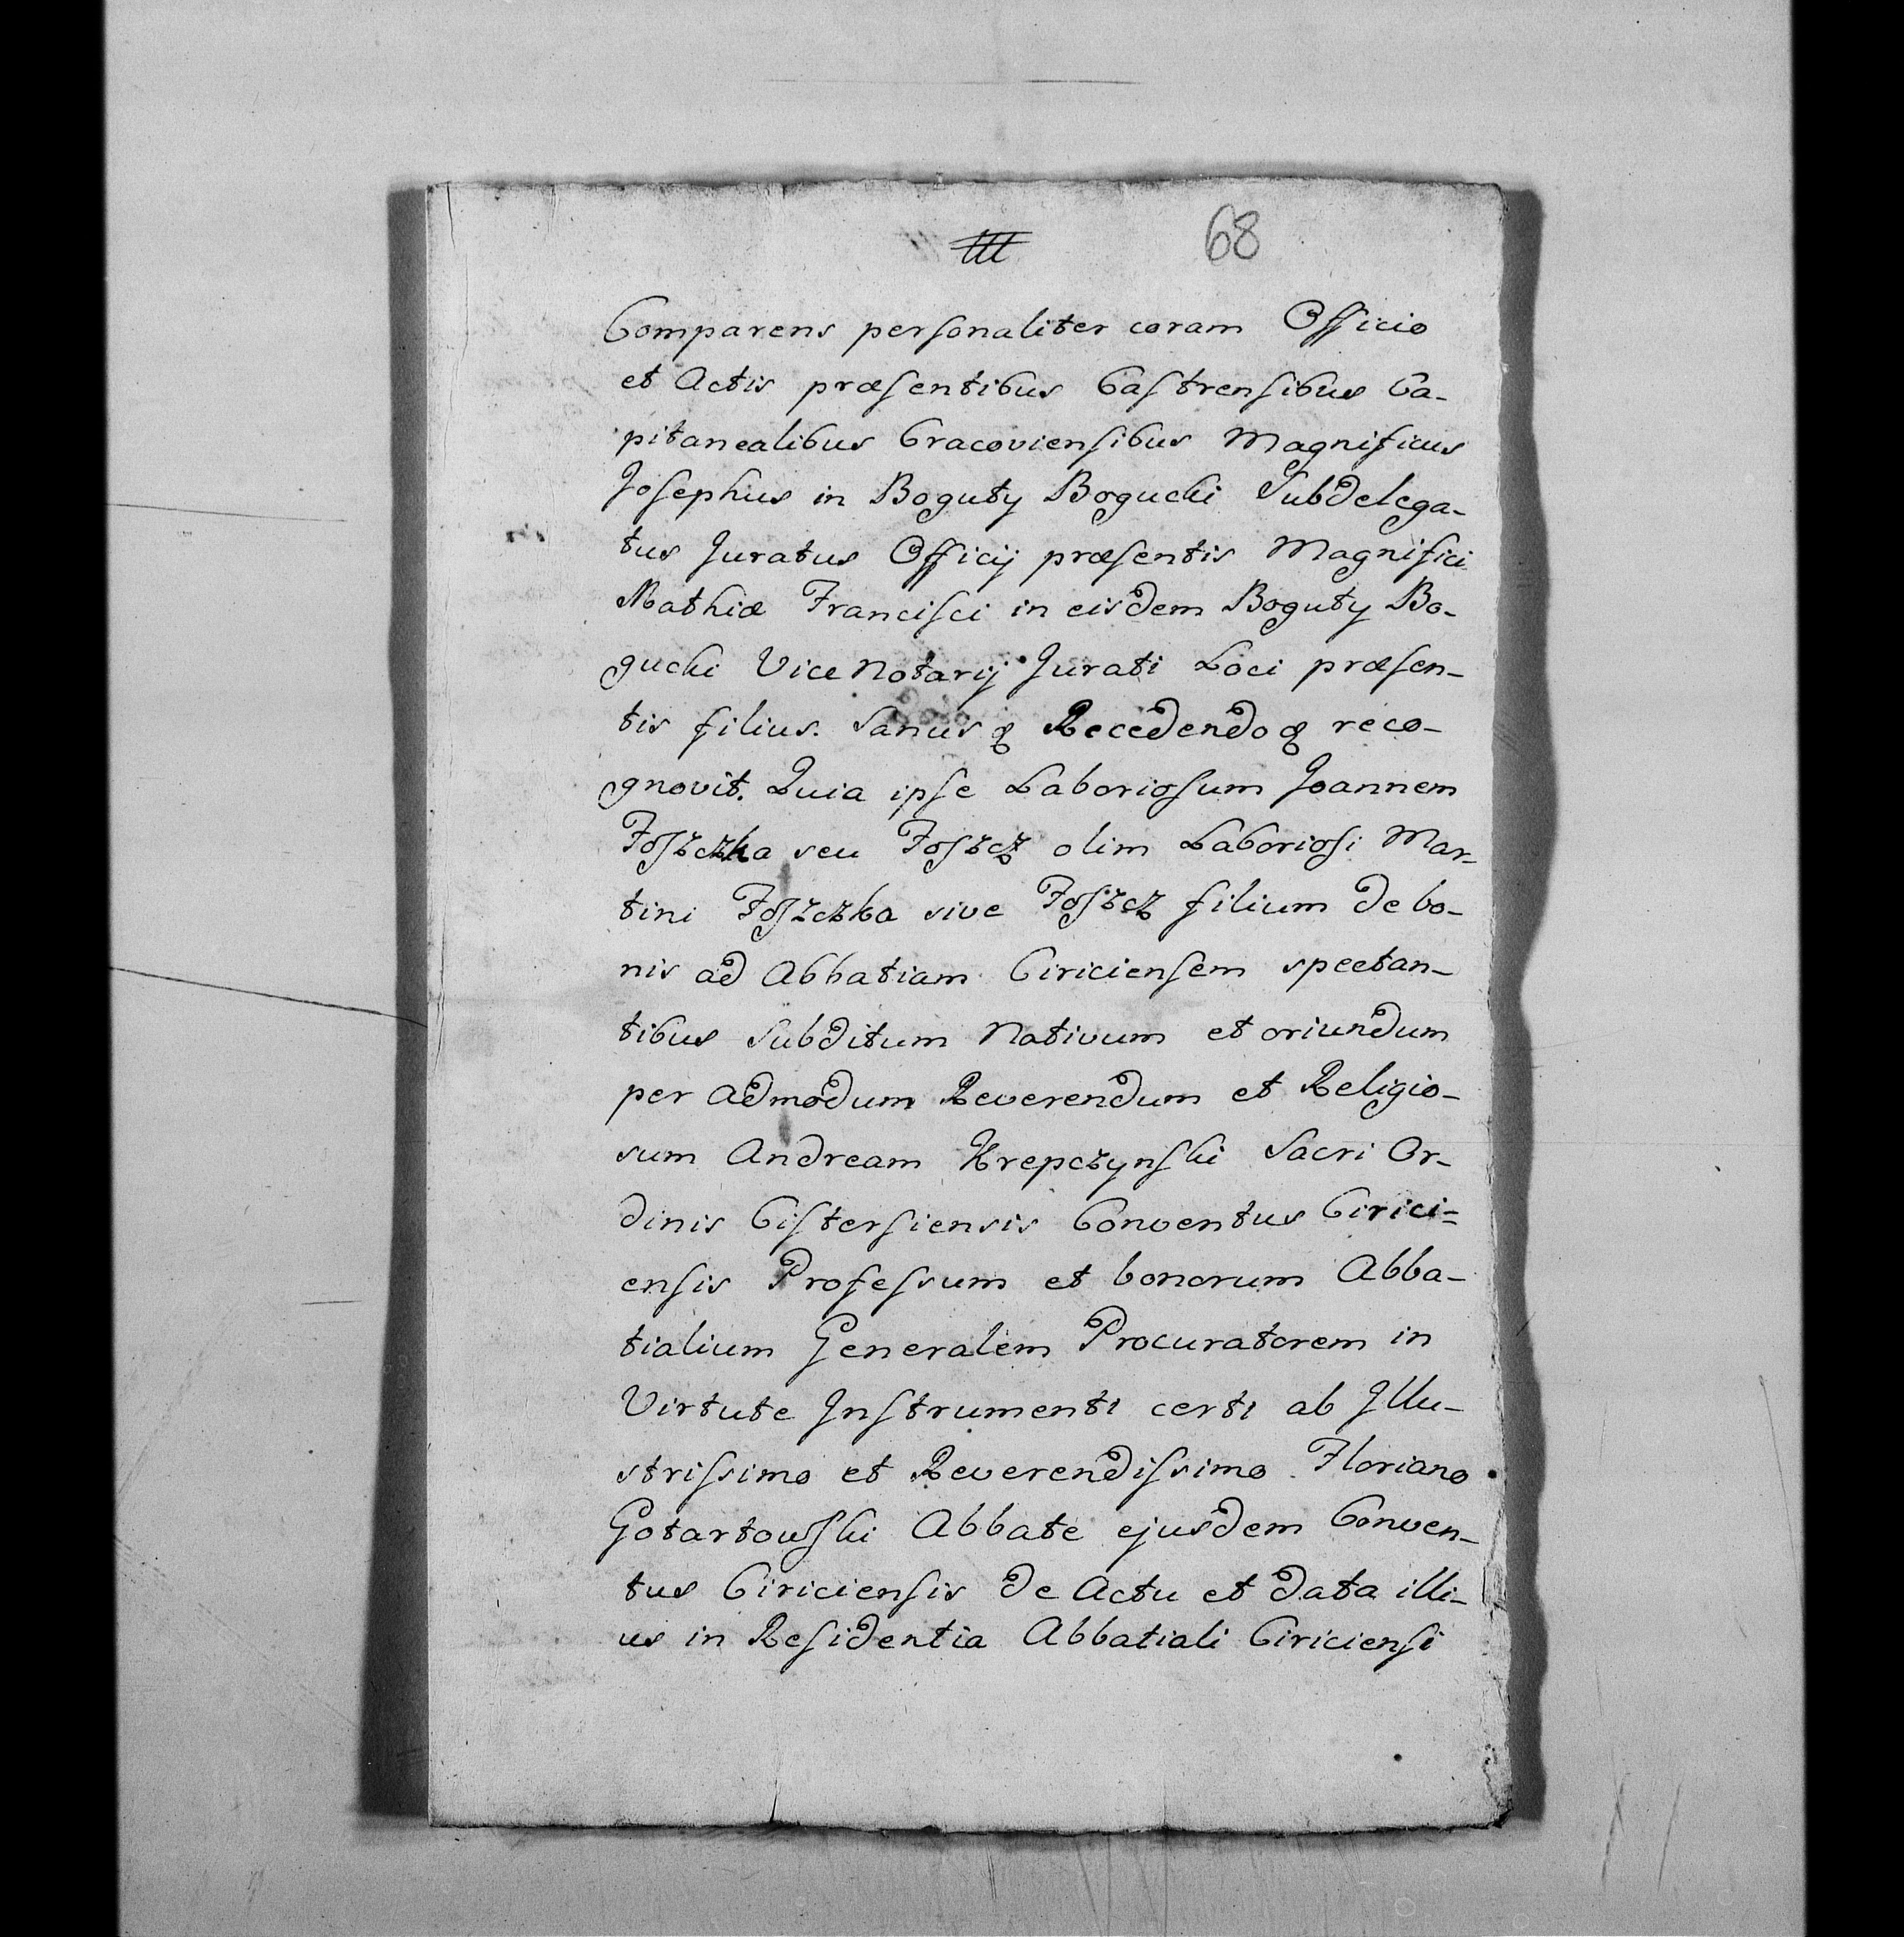 68
Comparens personaliter coram Officio
et Actis præsentibus Castrensibus Ca-
pitanealibus Cracoviensibus Magnificus
Josephus in Boguty Bogucki Subdelega-
tus Juratus Officij præsentis Magnifici
Mathiæ Francisci in eisdem Boguty Bo-
gucki Vice Notarij Jurati Loci præsen-
tis filius. Sanusq Recedendoq reco-
gnovit. Quia ipse Laboriosum Joannem
Foszczka seu Foszcz olim Laboriosi Mar-
tini Foszczka sive Foszcz filium de bo-
nis ad Abbatiam Ciriciensem spectan-
tibus Subditum Nativum et oriundum
per admodum Reverendum et Religio-
sum Andream Krepczynski Sacri Or-
dinis Cistersiensis Conventus Cirici=
ensis Professum et bonorum Abba-
tialium Generalem Procuratorem in
Virtute Instrumenti certi ab Illu-
strissimo et Reverendissimo Floriano
Gotartowski Abbate ejusdem Conven-
tus Ciriciensis de Actu et Data illi-
us in Residentia Abbatiali Ciriciensi